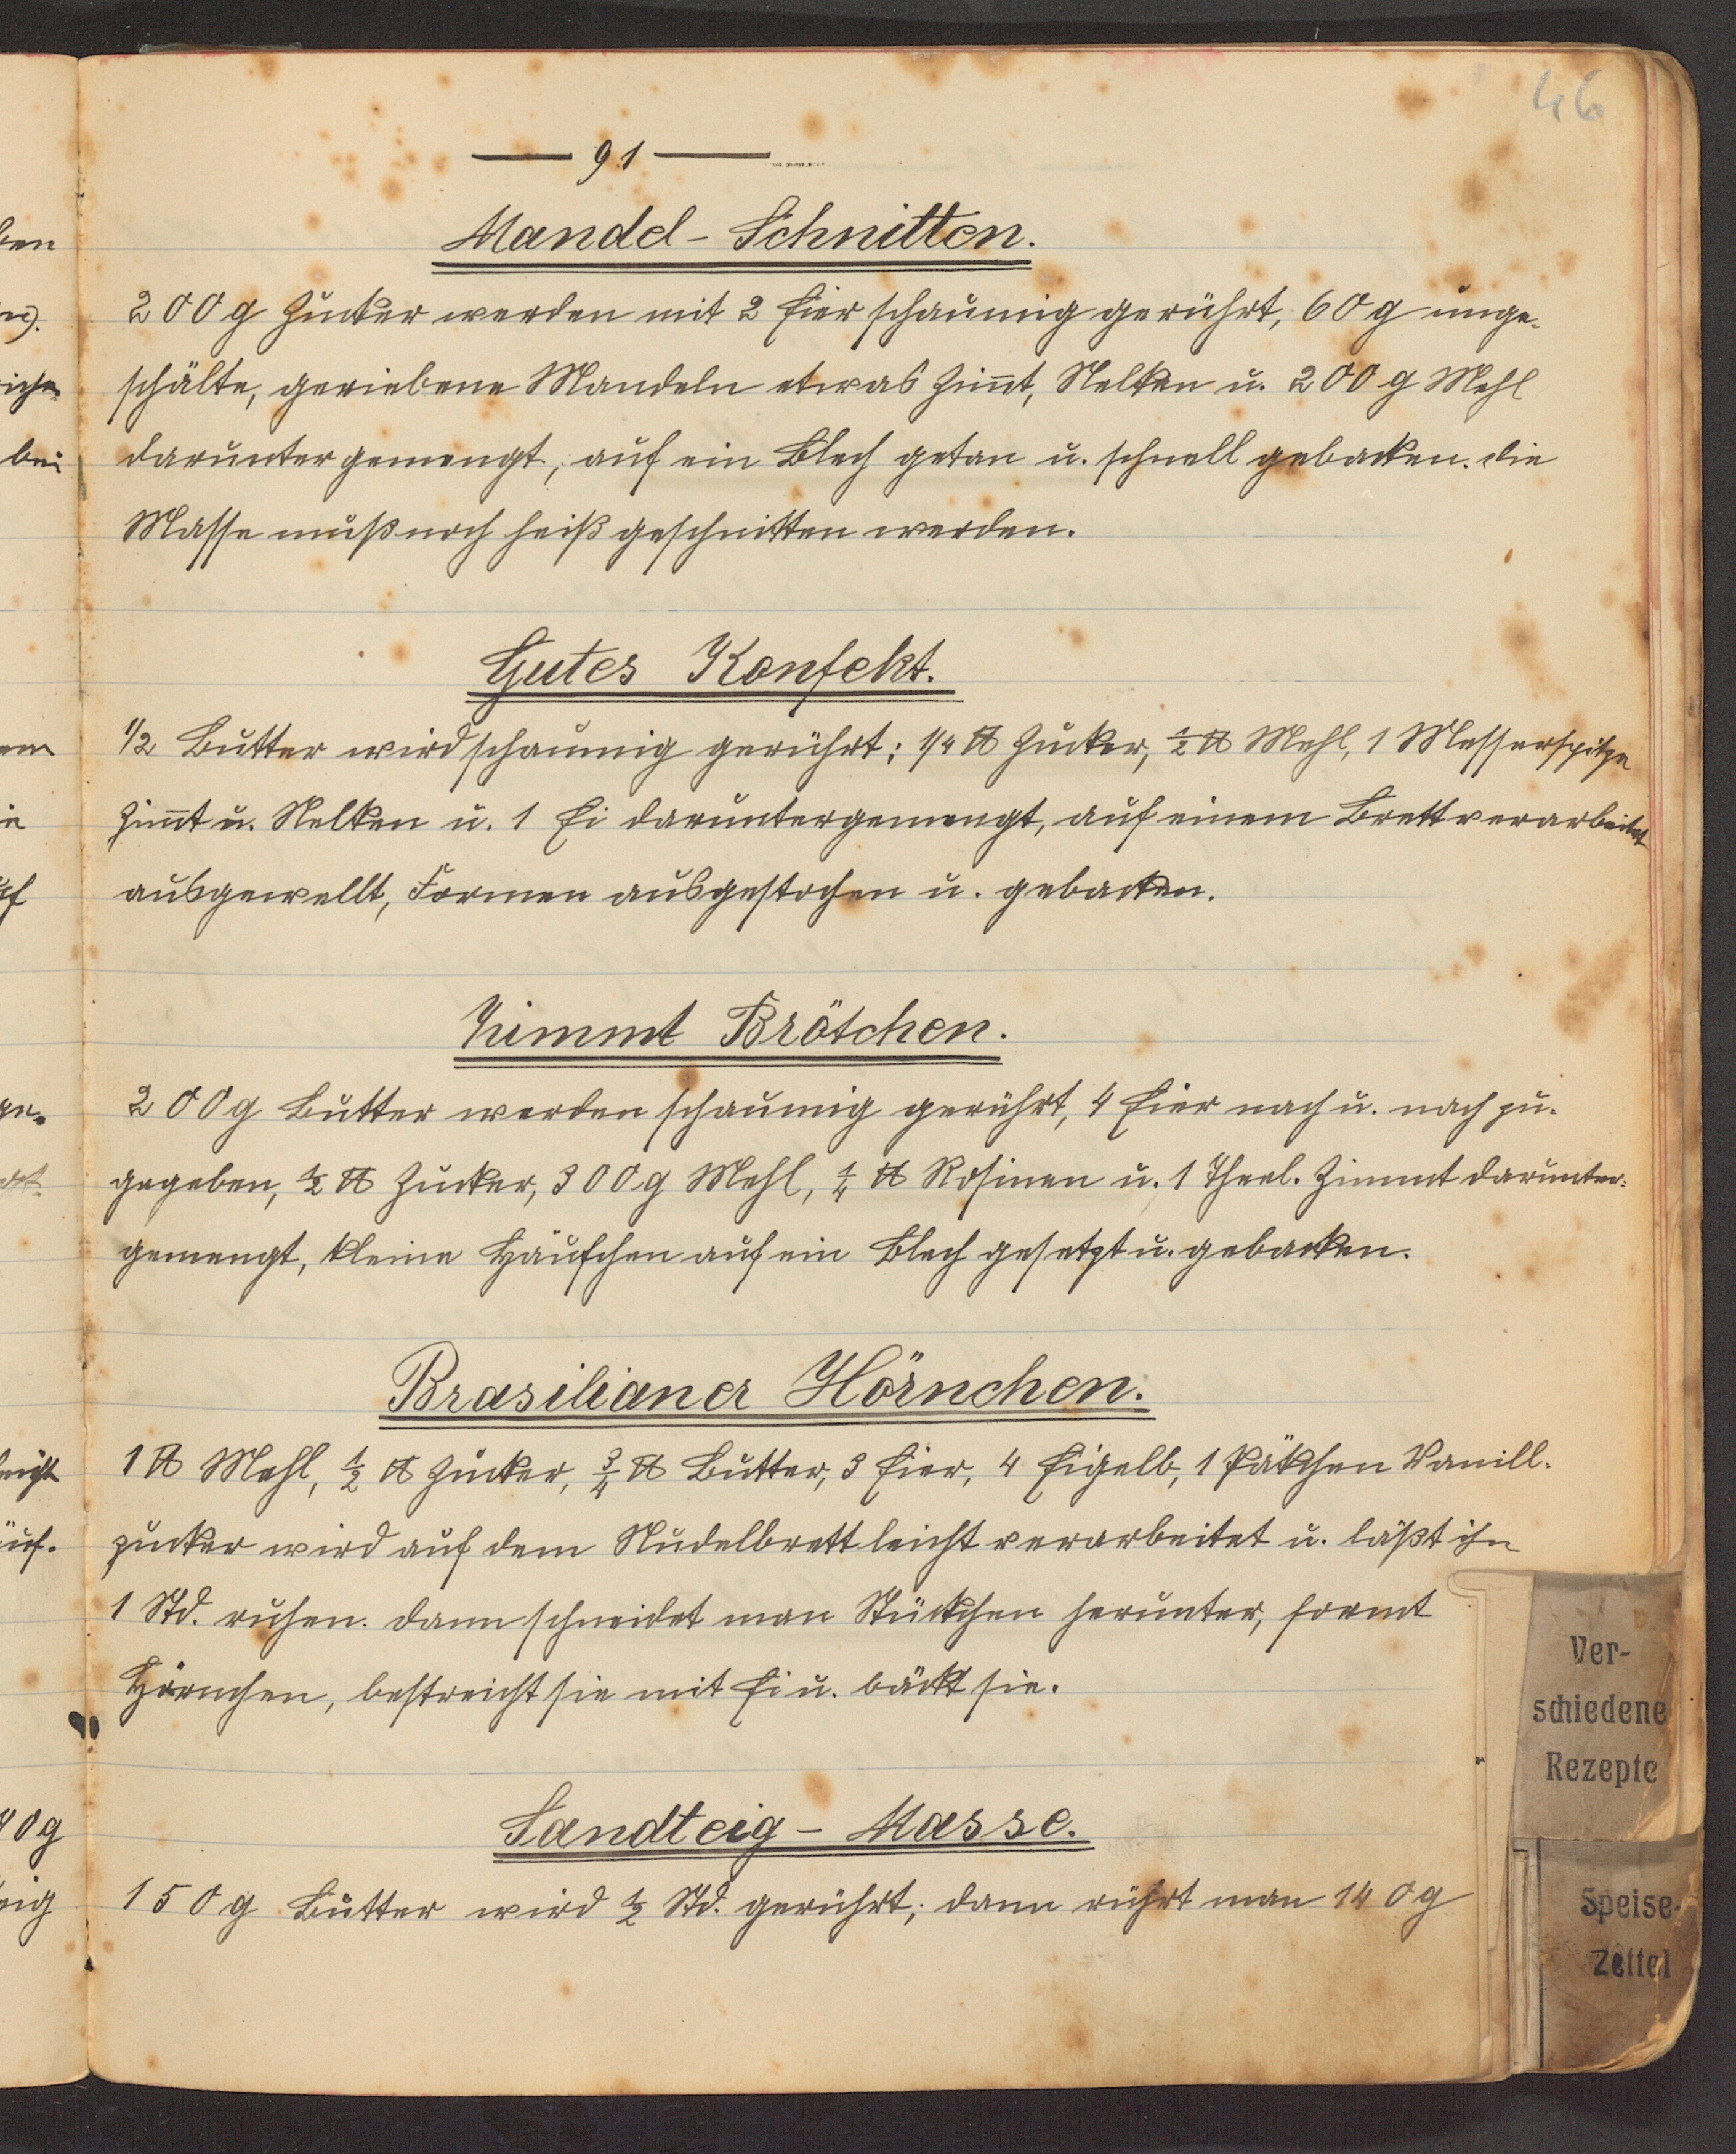 46
— 91 —
Mandel-Schnitten.
200 g Zucker werden mit 2 Eier schaumig gerührt, 60 g unge-
schälte, geriebene Mandeln etwas Zim̄t, Nelken u. 200 g Mehl
darunter gemengt, auf ein Blech getan u. schnell gebacken. Die
Masse muß noch heiß geschnitten werden.
Gutes Konfekt.
1/2 Butter wird schaumig gerührt; 1/4 ℔ Zucker, 1/2 ℔ Mehl, 1 Messerspitze
Zim̄t u. Nelken u. 1 Ei daruntergemengt, auf einem Brett verarbeitet
ausgewellt, Formen ausgestochen u. gebacken.
Zimmt Brötchen.
200 g Butter werden schaumig gerührt, 4 Eier nach u. nach zu-
gegeben, 1/2 ℔ Zucker, 300 g Mehl, 1/4 ℔ Rosinen u. 1 Theel. Zimmt darunter-
gemengt, kleine Häufchen auf ein Blech gesetzt u. gebacken.
Brasilianer Hörnchen.
1 ℔ Mehl, 1/2 ℔ Zucker, 3/4 ℔ Butter, 3 Eier, 4 Eigelb, 1 Päkchen Vanill-
zucker wird auf dem Nudelbrett leicht verarbeitet u. läßt ihn
1 Std. ruhen. Dann schneidet man Stückchen herunter, formt
Hörnchen, bestreicht sie mit Ei u. bäckt sie.
Sandteig-Masse.
150 g Butter wird 1/2 Std. gerührt; dann rührt man 140 g
Ver-
schiedene
Rezepte
Speise-
Zettel